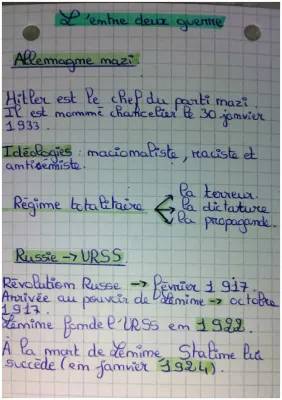 L'entre deux guerre
Allemagne nazi
Hitler est le chef du parti nazi.
Il est nommé chancelier le 30 janvier
1933.
Idéologies: nationaliste, raciste et
antisémiste.
la terreur.
Régime totalitaire la dictature
la propagande.
Russie → URSS
Révolution Russe → février 1917.
Arrivée au pouvoir de Lénine → octobre
1917.
Lénine fonde l'URSS en 1922.
À la mort de Lénine Staline lui
succède (en janvier 1924).